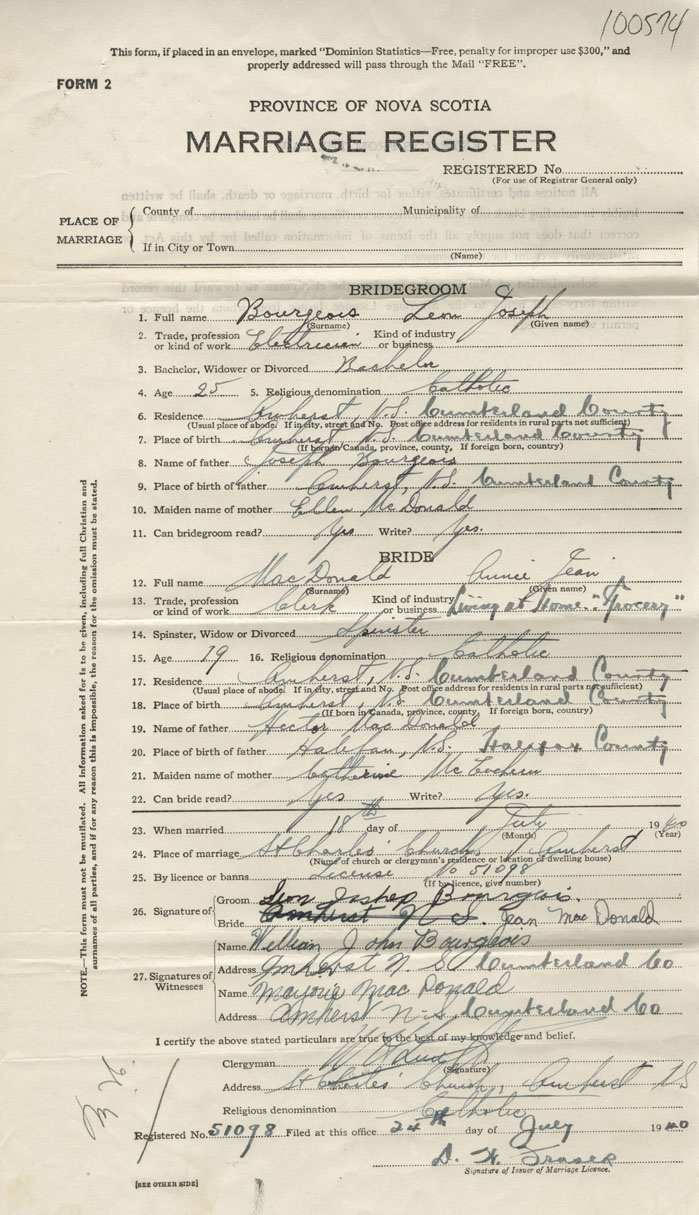 100574
This form, if placed in an envelope, marked "Dominion Statistics—Free, penalty for improper use $300," and
properly addressed will pass through the Mail "FREE".
FORM 2
PROVINCE OF NOVA SCOTIA
MARRIAGE REGISTER
REGISTERED No.
(For use of Registrar General only)
PLACE OF MARRIAGE
County of Municipality of
If in City or Town
(Name)
BRIDEGROOM
1. Full name Bourgeois Leon Joseph
(Surname) (Given name)
2. Trade, profession or kind of work Electrician Kind of industry or business
3. Bachelor, Widower or Divorced Bachelor
4. Age 25 5. Religious denomination Catholic
6. Residence Amherst, N.S. Cumberland County
(Usual place of abode. If in city, street and No. Post office address for residents in rural parts not sufficient)
7. Place of birth Amherst, N.S. Cumberland County
(If born in Canada, province, county, If foreign born, country)
8. Name of father Joseph Bourgeois
9. Place of birth of father Amherst, N.S. Cumberland County
10. Maiden name of mother Ellen McDonald
11. Can bridegroom read? Yes Write? Yes.
BRIDE
12. Full name MacDonald Annie Jean
(Surname) (Given name)
13. Trade, profession or kind of work Clerk Kind of industry or business Living at Home. "Grocery"
14. Spinster, Widow or Divorced Spinster
15. Age 19 16. Religious denomination Catholic
17. Residence Amherst, N.S. Cumberland County
(Usual place of abode. If in city, street and No. Post office address for residents in rural parts not sufficient)
18. Place of birth Amherst, N.S. Cumberland County
(If born in Canada, province, county, If foreign born, country)
19. Name of father Hector MacDonald
20. Place of birth of father Halifax, N.S. Halifax County
21. Maiden name of mother Catherine
22. Can bride read? Yes Write? Yes.
23. When married 18th day of July 1940
(Month) (Year)
24. Place of marriage St Charles' Church, Amherst
(Name of church or clergyman's residence or location of dwelling house)
25. By licence or banns License No 51098
(If by licence, give number)
26. Signature of
Groom Leon Joshep Bourgeois.
Bride Amherst N S. Jean Mac Donald
27. Signatures of Witnesses
Name William John Bourgeois
Address Amherst N. S Cumberland Co
Name Marjorie Mac Donald
Address Amherst N.S. Cumberland Co
I certify the above stated particulars are true to the best of my knowledge and belief.
Clergyman
(Signature)
Address St Charles' Church, Amherst NS
Religious denomination Catholic
Registered No. 51098 Filed at this office 24th day of July 1940
D. W. Fraser
Signature of Issuer of Marriage Licence.
[SEE OTHER SIDE]
NOTE.—This form must not be mutilated. All information asked for is to be given, including full Christian and
surnames of all parties, and if for any reason this is impossible, the reason for the omission must be stated.